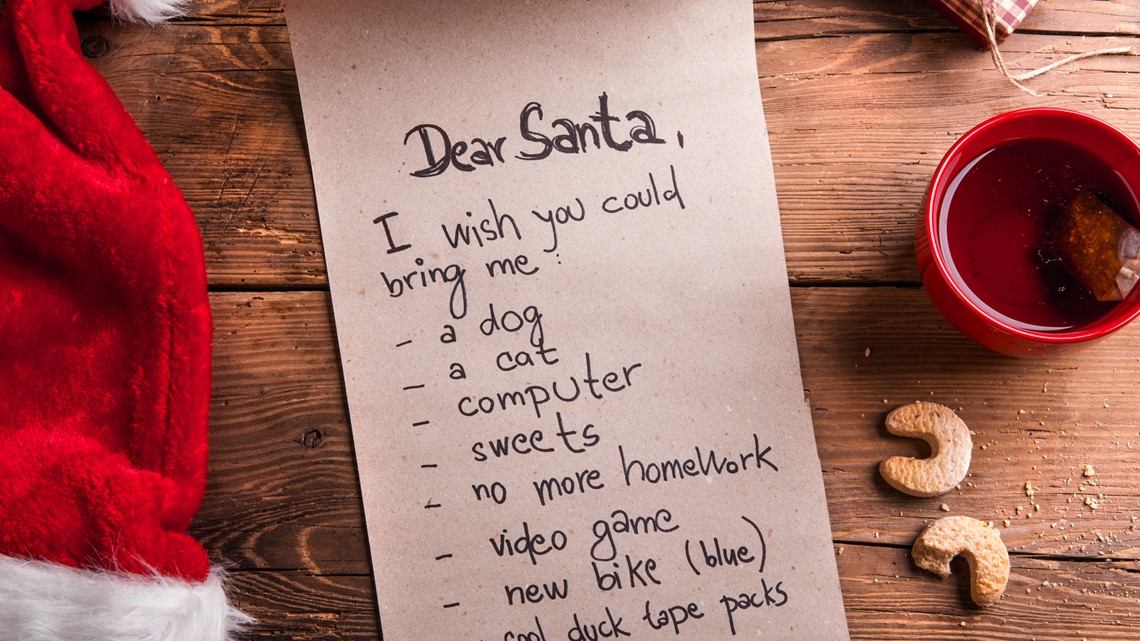 Dear Santa,
I wish you could
bring me:
- a dog
- a cat
- computer
- sweets
- no more homework
- video game
- new bike (blue)
- cool duck tape packs